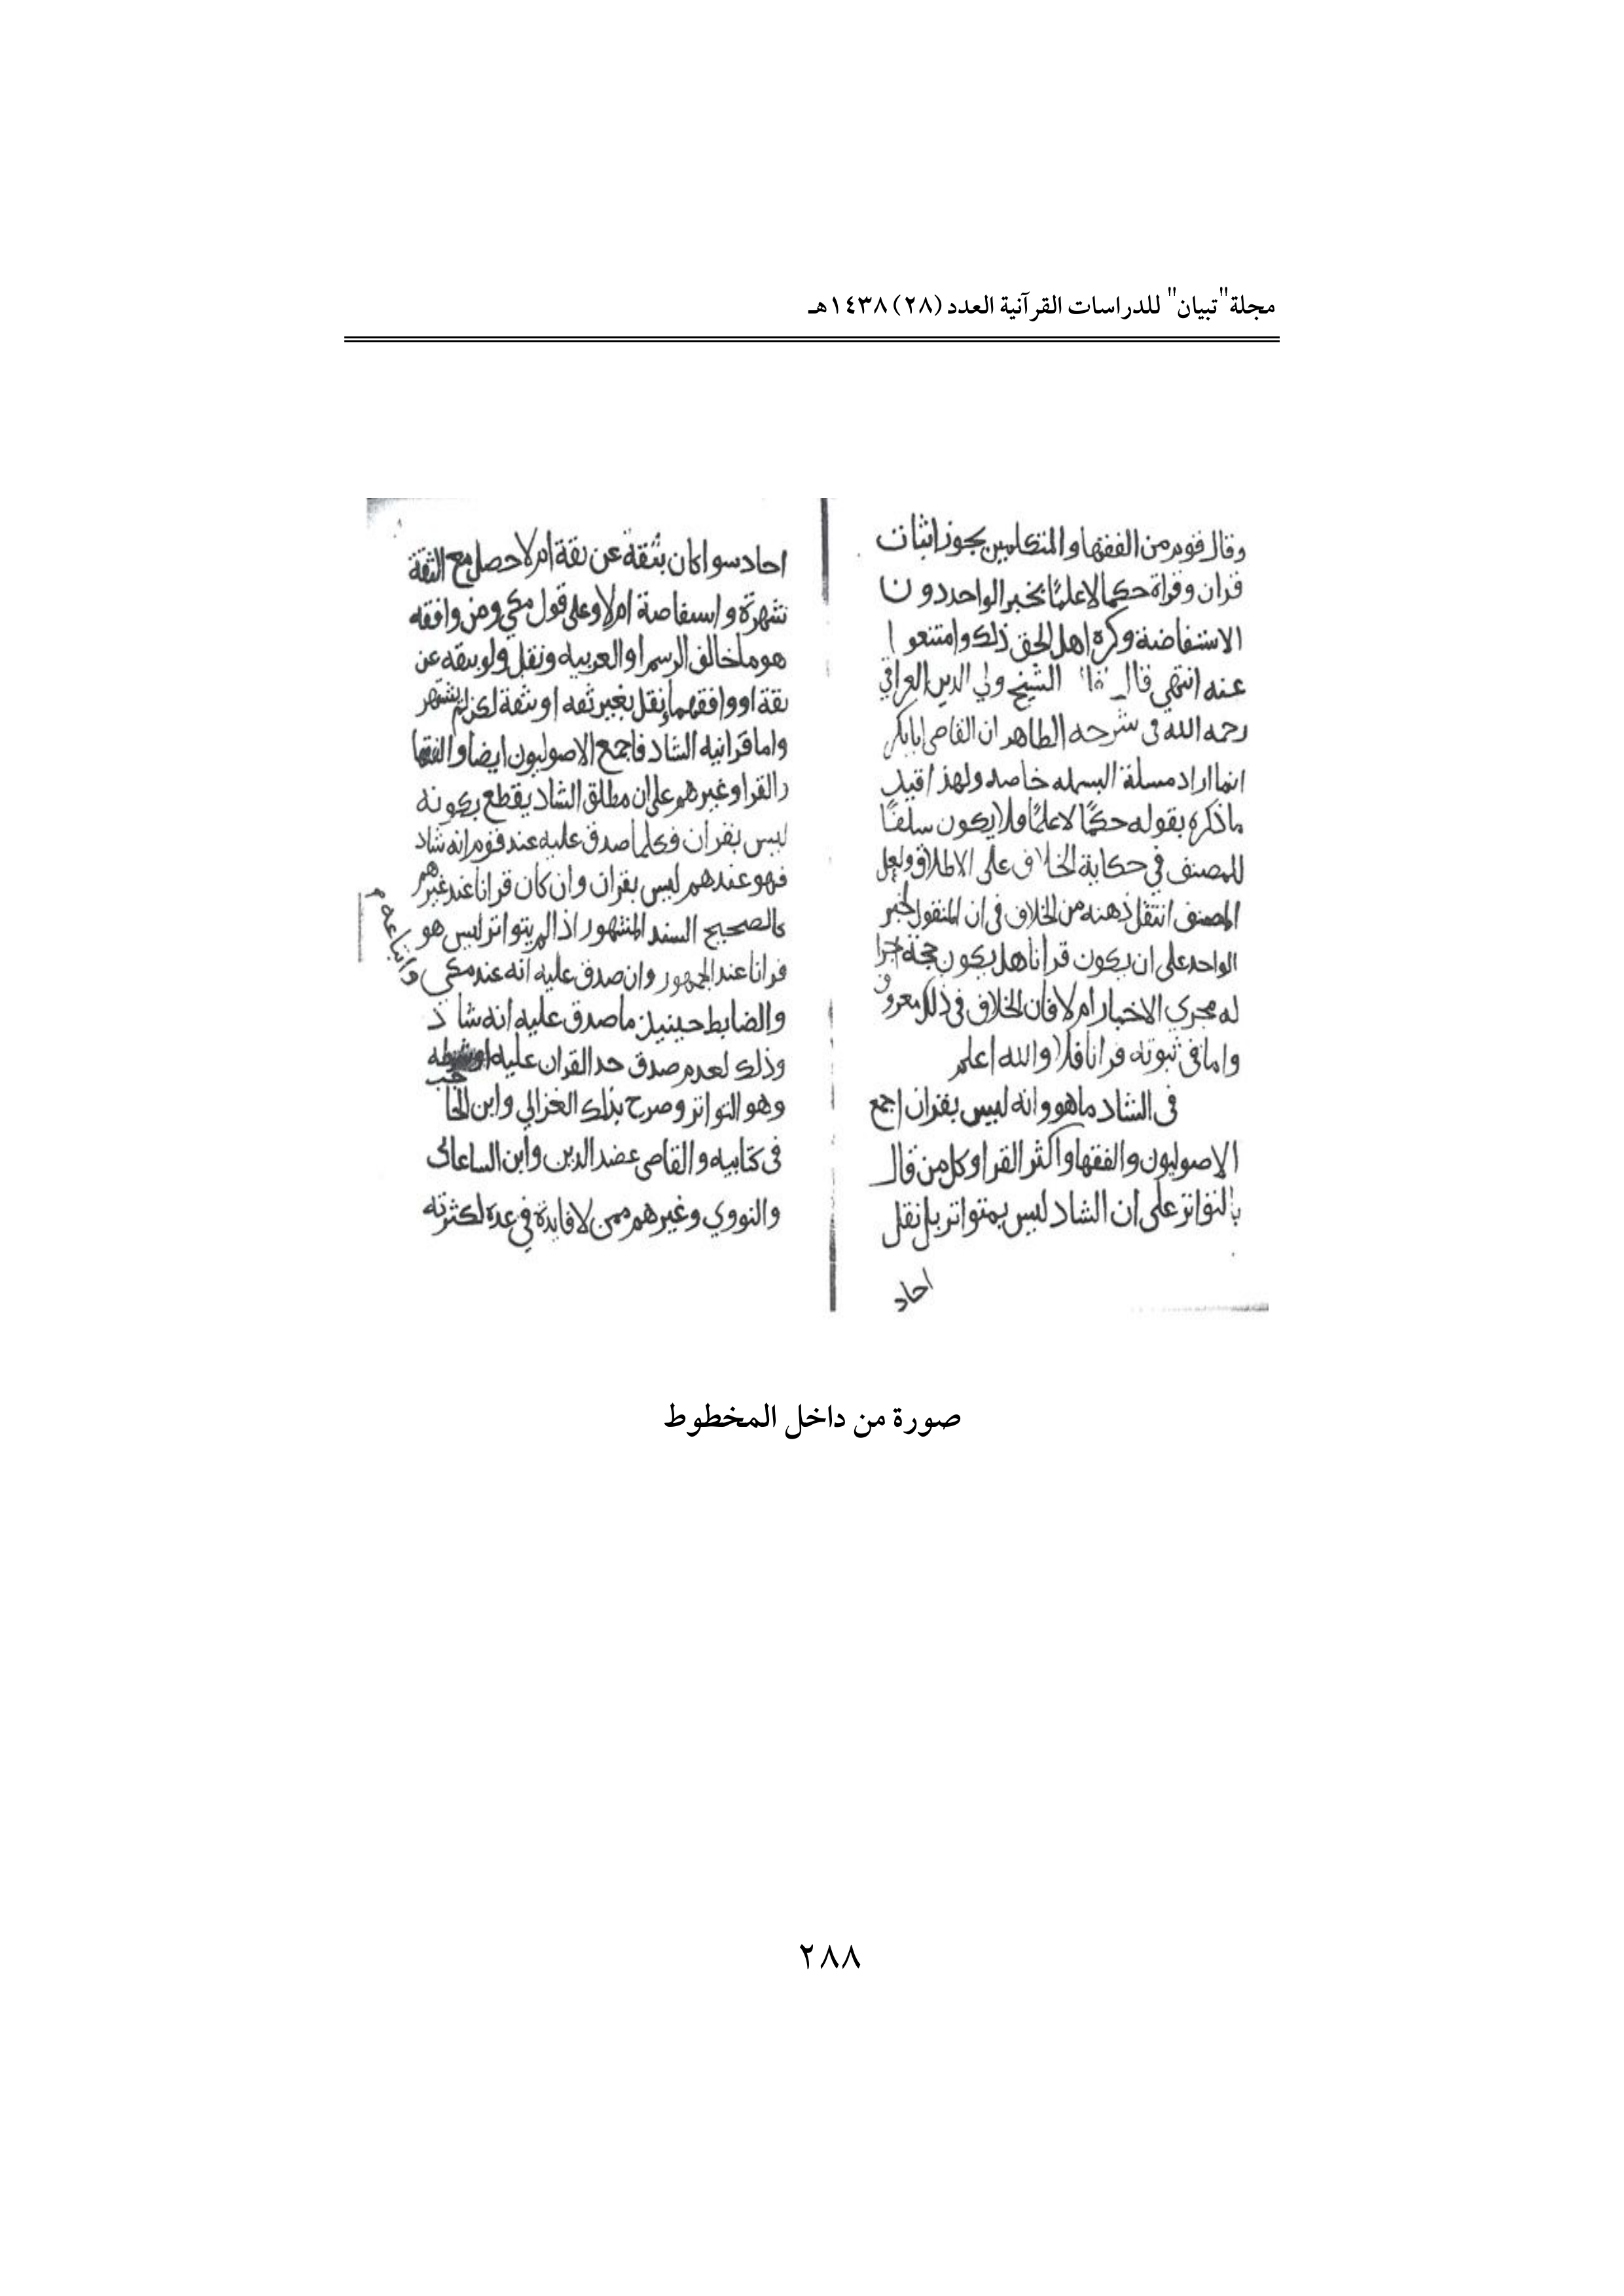 مجلة"تبيان" للدراسات القرآنية العدد (٢٨) ١٤٣٨هـ
وقال قوم من الفقها والمتكلمين يجوز اثبات
قران وقراة حكما لا علمًا بخبر الواحد دون
الاستفاضة وكره اهل الحق ذلك وامتنعوا
عنه انتهى قال الشيخ ولي الدين العراقي
رحمه الله فى شرحه الظاهر ان القاضي ابا بكر
انما اراد مسلة البسمله خاصه ولهذا قيد
ما ذكره بقوله حكمًا لا علمًا فلا يكون سلفًا
للمصنف في حكاية الخلاف على الاطلاق ولعل
المصنف انتقل ذهنه من الخلاف فى ان المنقول بخبر
الواحد على ان يكون قرانا هل يكون حجة اجرا
له مجري الاخبار ام لا فان الخلاف فى ذلك معروف
واما فى ثبوته قرانا فلا والله اعلم
فى الشاد ما هو وانه ليس بقران اجمع
الاصوليون والفقها واكثر القرا وكل من قال
بالتواتر على ان الشاد ليس بمتواتر بل نقل
احاد
احاد سوا كان بثقة عن ثقة ام لا حصل مع الثقة
شهرة واستفاضة ام لا وعلى قول مكي ومن وافقه
هو ما خالف الرسم او العربيه ونقل ولو بثقه عن
ثقة او وافقهما ونقل بغير ثقه او بثقة لكن لم يشتهر
واما قرانيه الشاد فاجمع الاصوليون ايضا والفقها
والقرا وغيرهم على ان مطلق الشاد يقطع بكونه
ليس بقران فكلما صدق عليه عند قوم انه شاد
فهو عندهم ليس بقران وان كان قرانا عند غيرهم
كالصحيح السند المشهور اذا لم يتواتر ليس هو
قرانا عند الجمهور وان صدق عليه انه عند مكي
واتباعه
والضابط حينيذ ما صدق عليه انه شاذ
وذلك لعدم صدق حد القران عليه او شرطه
وهو التواتر وصرح بذلك الغزالي وابن الحاجب
فى كتابيه والقاضى عضد الدين وابن الساعاتى
والنووي وغيرهم ممن لا فايدة في عده لكثرته
صورة من داخل المخطوط
٢٨٨